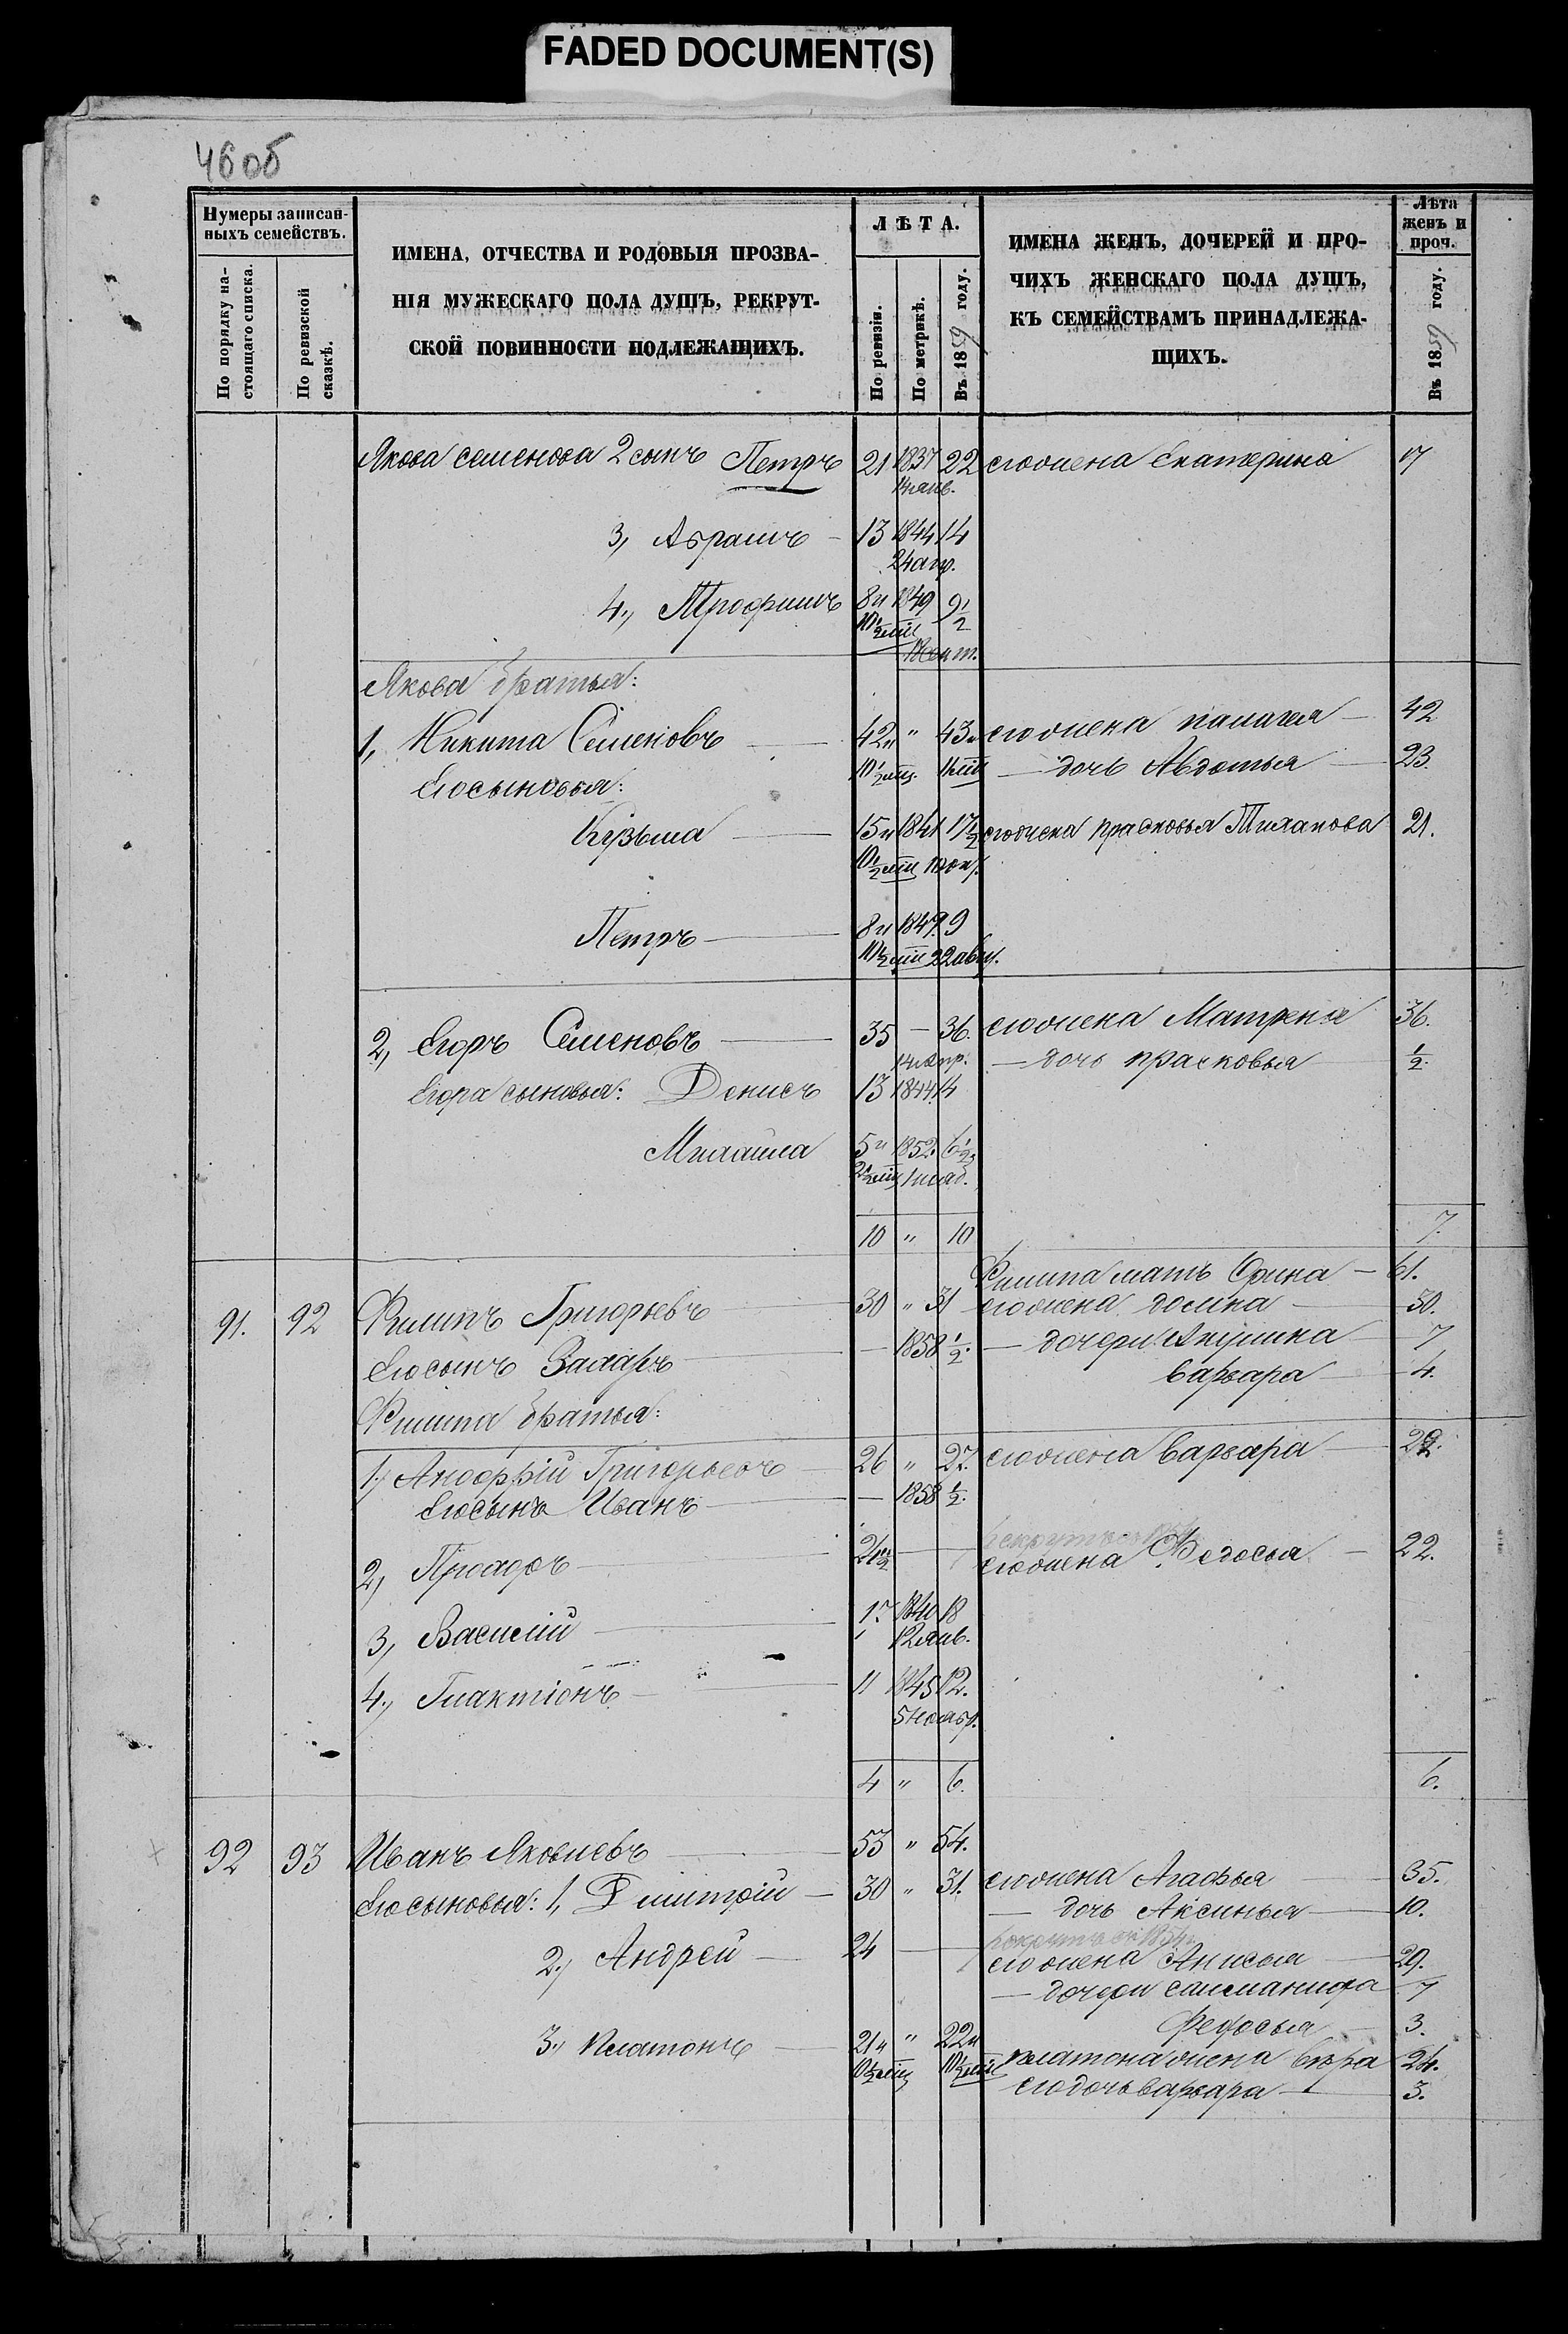 FADED DOCUMENT(S)
46 об
Нумеры записан-
ныхъ семействъ.
По порядку на-
стоящаго списка.
По ревизской
сказкѣ.
ИМЕНА, ОТЧЕСТВА И РОДОВЫЯ ПРОЗВА-
НІЯ МУЖЕСКАГО ПОЛА ДУШЪ, РЕКРУТ-
СКОЙ ПОВИННОСТИ ПОДЛЕЖАЩИХЪ.
ЛѢТА.
По ревизіи.
По метрикѣ.
Въ 1859 году.
ИМЕНА ЖЕНЪ, ДОЧЕРЕЙ И ПРО-
ЧИХЪ ЖЕНСКАГО ПОЛА ДУШЪ,
КЪ СЕМЕЙСТВАМЪ ПРИНАДЛЕЖА-
ЩИХЪ.
Лѣта
женъ и
проч.
Въ 1859 году.
Якова семенова 2 сынъ Петръ 21 1837 22 его жена Екатерина 17
14 янв.
3, Абрамъ - 13 1844 14
24 апр.
4, Трофимъ 8 и 1849 9 1/2
10 1/2 мѣс
Якова братья:
1, Никита Семеновъ — 42 и " 43 и его жена палагея — 42
10 1/2 мѣс. — дочь Авдотья — 23.
Его сыновья:
Кузьма — 15 и 1841 17 1/2 его жена прасковья 21.
10 1/2 мѣс
Петръ — 8 и 1849. 9
10 1/2 мѣс 22 авг.
2, Егоръ Семеновъ — 35 — 36. его жена Матрена 36.
14 апр. — дочь прасковья 1/2.
Егора сыновья: Денисъ 13 1844. 14
Михайла 5 и 1852. 6 1/2
10 " 10 7.
Филипа мать Орина — 61.
91. 92 Филипъ Григорьевъ 30 " 31 его жена домна — 30.
Его сынъ Захаръ — 1858 1/2. — дочери: Акулина — 7
Варвара — 4.
Филипа братья:
1, Григорьевъ — 26 " 27. его жена Варвара — 22.
Его сынъ Иванъ — — 1858 1/2.
2, — его жена Федосья — 22.
3, Василій — 17. 1840 18
12 янв.
4, Глактіонъ — 11 1845 12.
5 ноябр.
4 " 6. 6.
92 93 Иванъ Яковлевъ — 53 " 54.
Его сыновья: 1, Дмитрій — 30 " 31. его жена Агафья — 35.
— дочь Аксинья — 10.
2, Андрей — 24 — 1854
его жена Анисья — 29.
— дочери 7
Федосья — 3.
3, Платонъ — 21 и " 22 и платона жена Вѣра 24.
10 1/2 мѣс 10 1/2 мѣс его дочь варвара — 3.